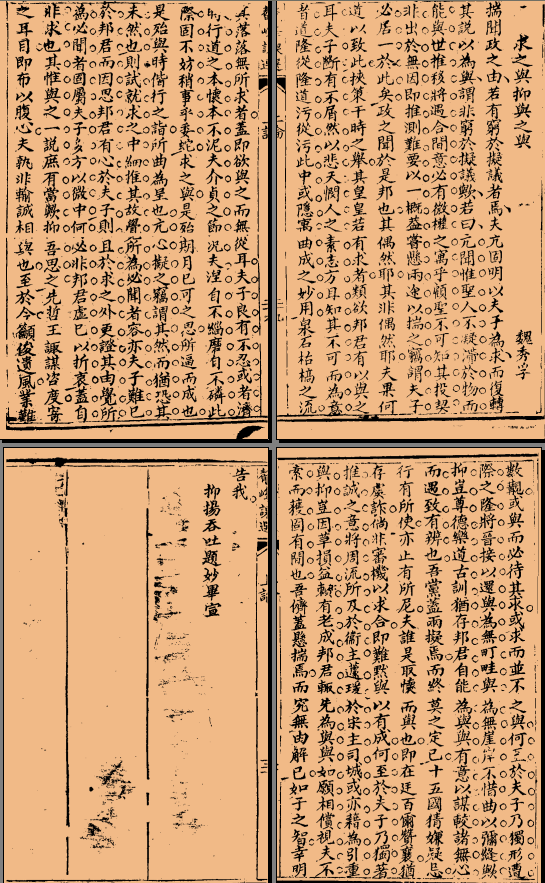 求之與抑與之與
魏秀孚
揣聞政之由若有窮於擬議者焉夫亢固明以夫子為求而復轉
其說以為與謂非窮於擬議歟若曰亢聞惟聖人不凝滯於物而
能與世推移將遇合間意必有微權之寓乎顧聖不可知其投契
非出於無因即推測難要以一概盍審懸兩途以揣之竊謂夫子
必居一於此矣政之聞於是邦也其偶然耶其非偶然耶夫果何
道以致此挾策干時之舉其皇皇若有求者類欲邦君有以與之
耳夫子斷有不屑然以悲天憫人之素志方且知其不可而為意
者道隆從隆道污從污此中或隱寓曲成之妙用泉石枯槁之流
其落落無所求者蓋即欲與之而無從耳夫子良有不忍或者濟
時行道之本懷本不泥夫介貞之節沉夫涅自不緇磨自不磷此
際固不妨稍事乎委蛇求之與是殆期月已可之思所逼而成也
是殆與時偕行之詣所曲為呈也亢心擬之竊謂其然而猶恐其
未然也則試就求之中細推其故聲所為必聞者容亦夫子難已
於邦君而因思邦君有心於夫子則且於求之外更證其由覺所
為必聞者固屬夫子多方以微中何必非邦君虛已以折衷蓋自
非求也其惟與之一說庶有當歟抑吾思之先哲王諏謀咨度寄
之耳目即布以腹心夫孰非輸誠相與也至於今籲俊遺風業難
數覯或與而必待其求或求而並不之與何至於夫子乃獨形遭
際之隆將晉接以還與為無町畦與為無崖岸不惜曲以彌縫歟
抑豈尊德樂道古訓猶存邦君自能為與與有意以謀較諸無心
而遇致有辨也吾黨蓋兩擬焉而終莫之定已十五國猜嫌疑忌
行有所使亦止有所尼夫誰是取懷而與也即在廷百爾贊襄猶
存虞詐倘非審機以求合即難默與以有成何至於夫子乃獨著
推誠之意將周流所及於衞主蘧瑗於宋主司城或亦藉為引重
與抑豈因革損益有老成邦君輒先為與與如願相償視夫不
索而獲固有間也吾儕蓋懸揣焉而究無由解已如子之智幸明
告我
抑揚吞吐題妙畢宣